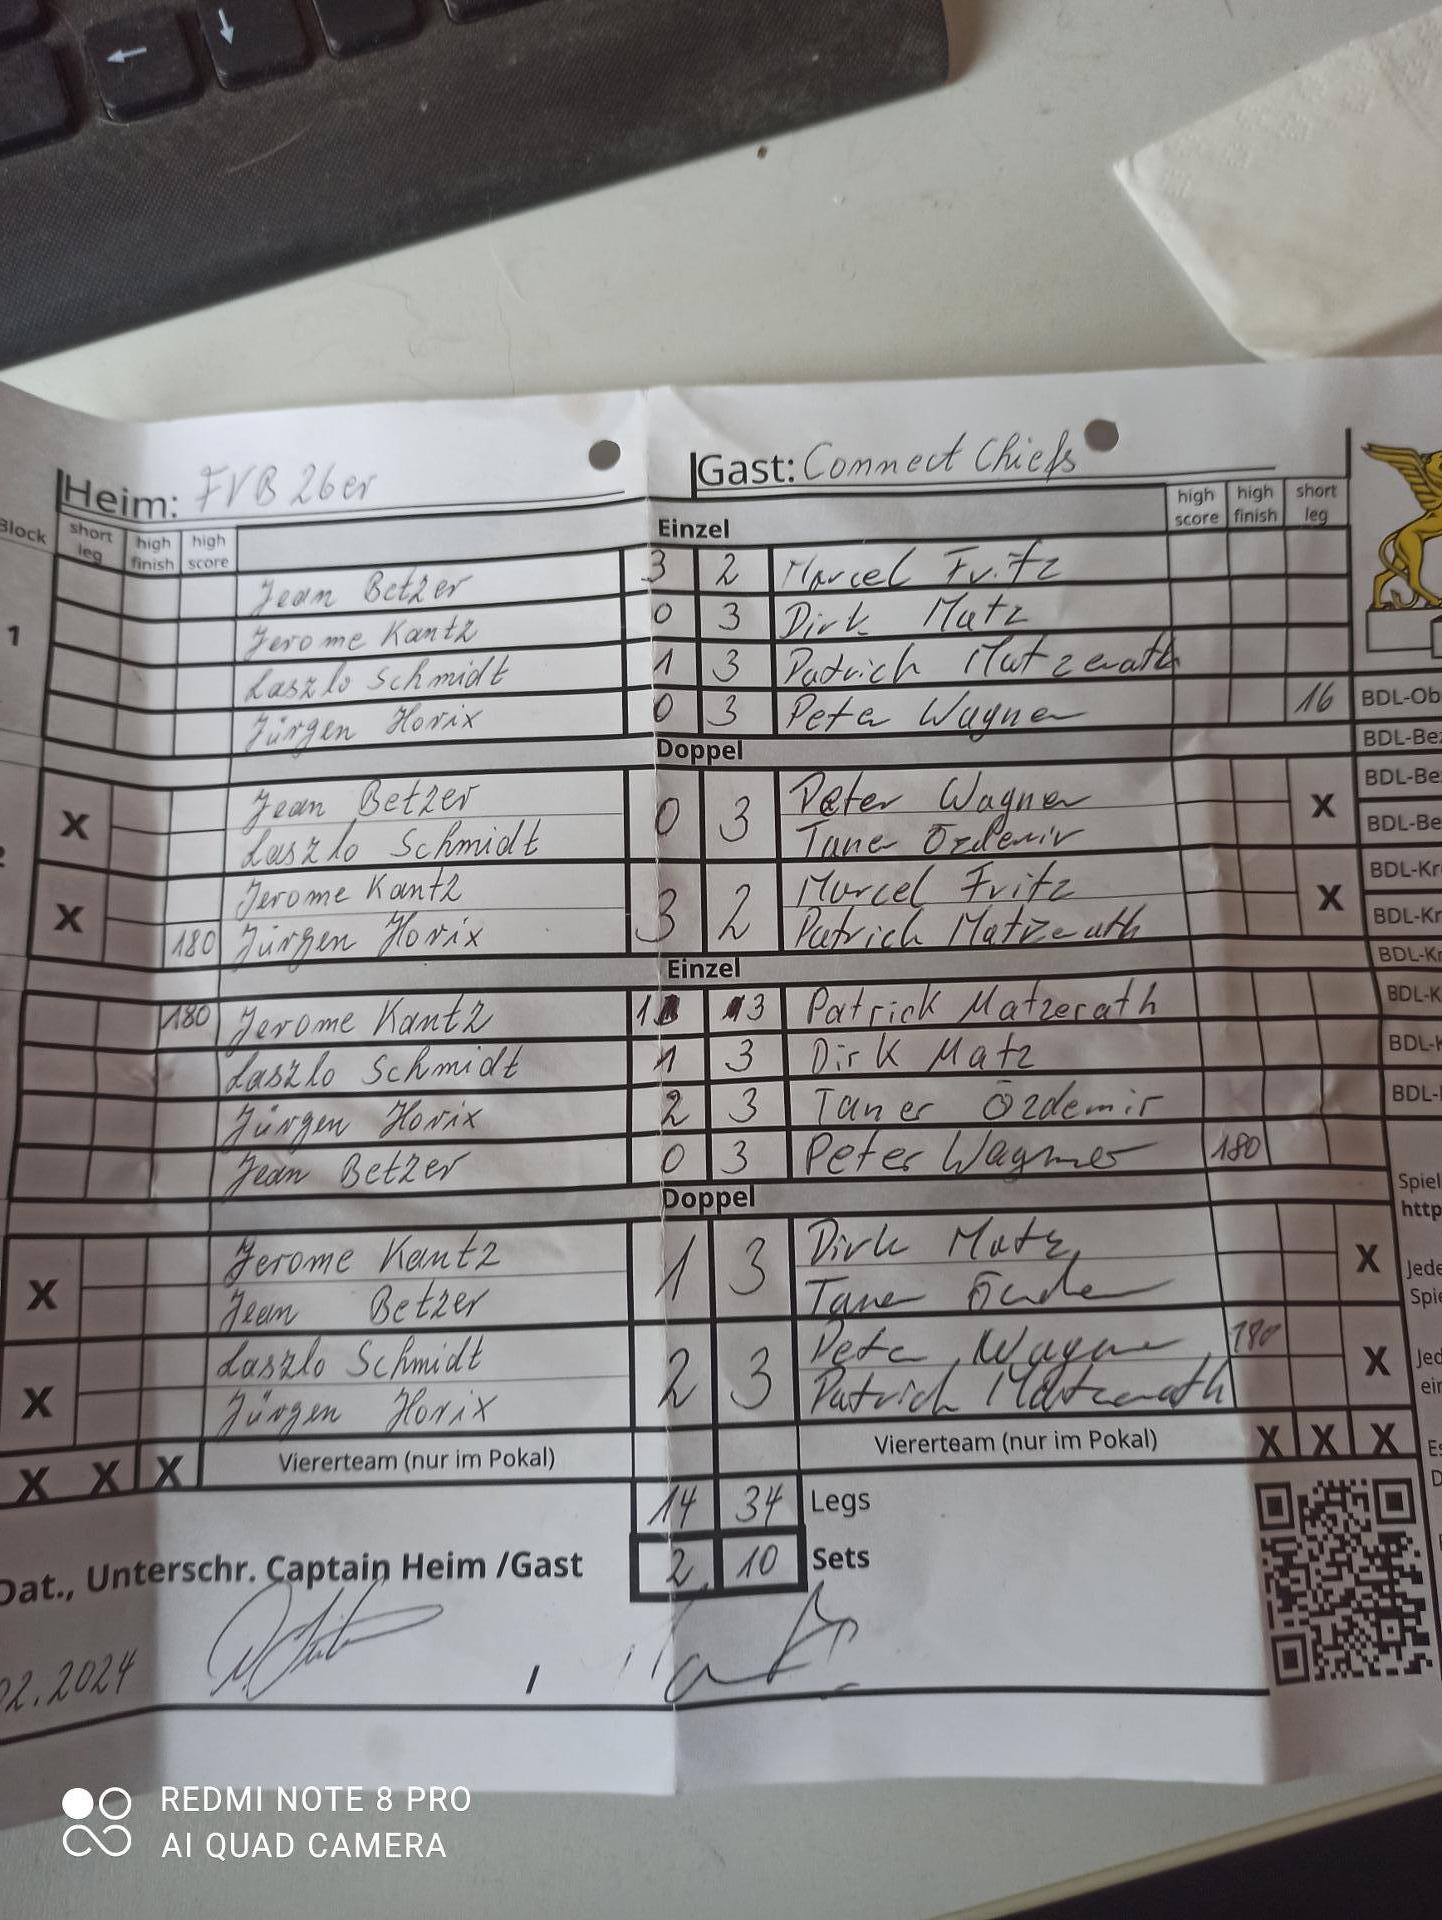 ←
↓
Heim: FVB 26er Gast: Connect Chiefs
Block short leg high finish high score Einzel high score high finish short leg
Jean Betzer 3 2 Marcel Fritz
1 Jerome Kantz 0 3 Dirk Matz
Laszlo Schmidt 1 3 Patrich Matzerath
Jürgen Horix 0 3 Peter Wagner 16 BDL-Ob
Doppel BDL-Bez
X Jean Betzer 0 3 Peter Wagner X BDL-Be
Laszlo Schmidt Taner Özdemir BDL-Be
X Jerome Kantz 3 2 Marcel Fritz X BDL-Kr
180 Jürgen Horix Patrich Matzerath BDL-Kr
Einzel BDL-Kr
180 Jerome Kantz 1 3 Patrick Matzerath BDL-K
Laszlo Schmidt 1 3 Dirk Matz BDL-K
Jürgen Horix 2 3 Taner Özdemir BDL-
Jean Betzer 0 3 Peter Wagner 180
Doppel Spiel
http
X Jerome Kantz 1 3 Dirk Matz X Jede
Jean Betzer Taner Spie
X Laszlo Schmidt 2 3 Peter Wagner 180 X Jed
Jürgen Horix Patrich Matzerath ein
X X X Viererteam (nur im Pokal) Viererteam (nur im Pokal) X X X Es
14 34 Legs D
Dat., Unterschr. Captain Heim /Gast 2 10 Sets
02.2024 /
REDMI NOTE 8 PRO
AI QUAD CAMERA